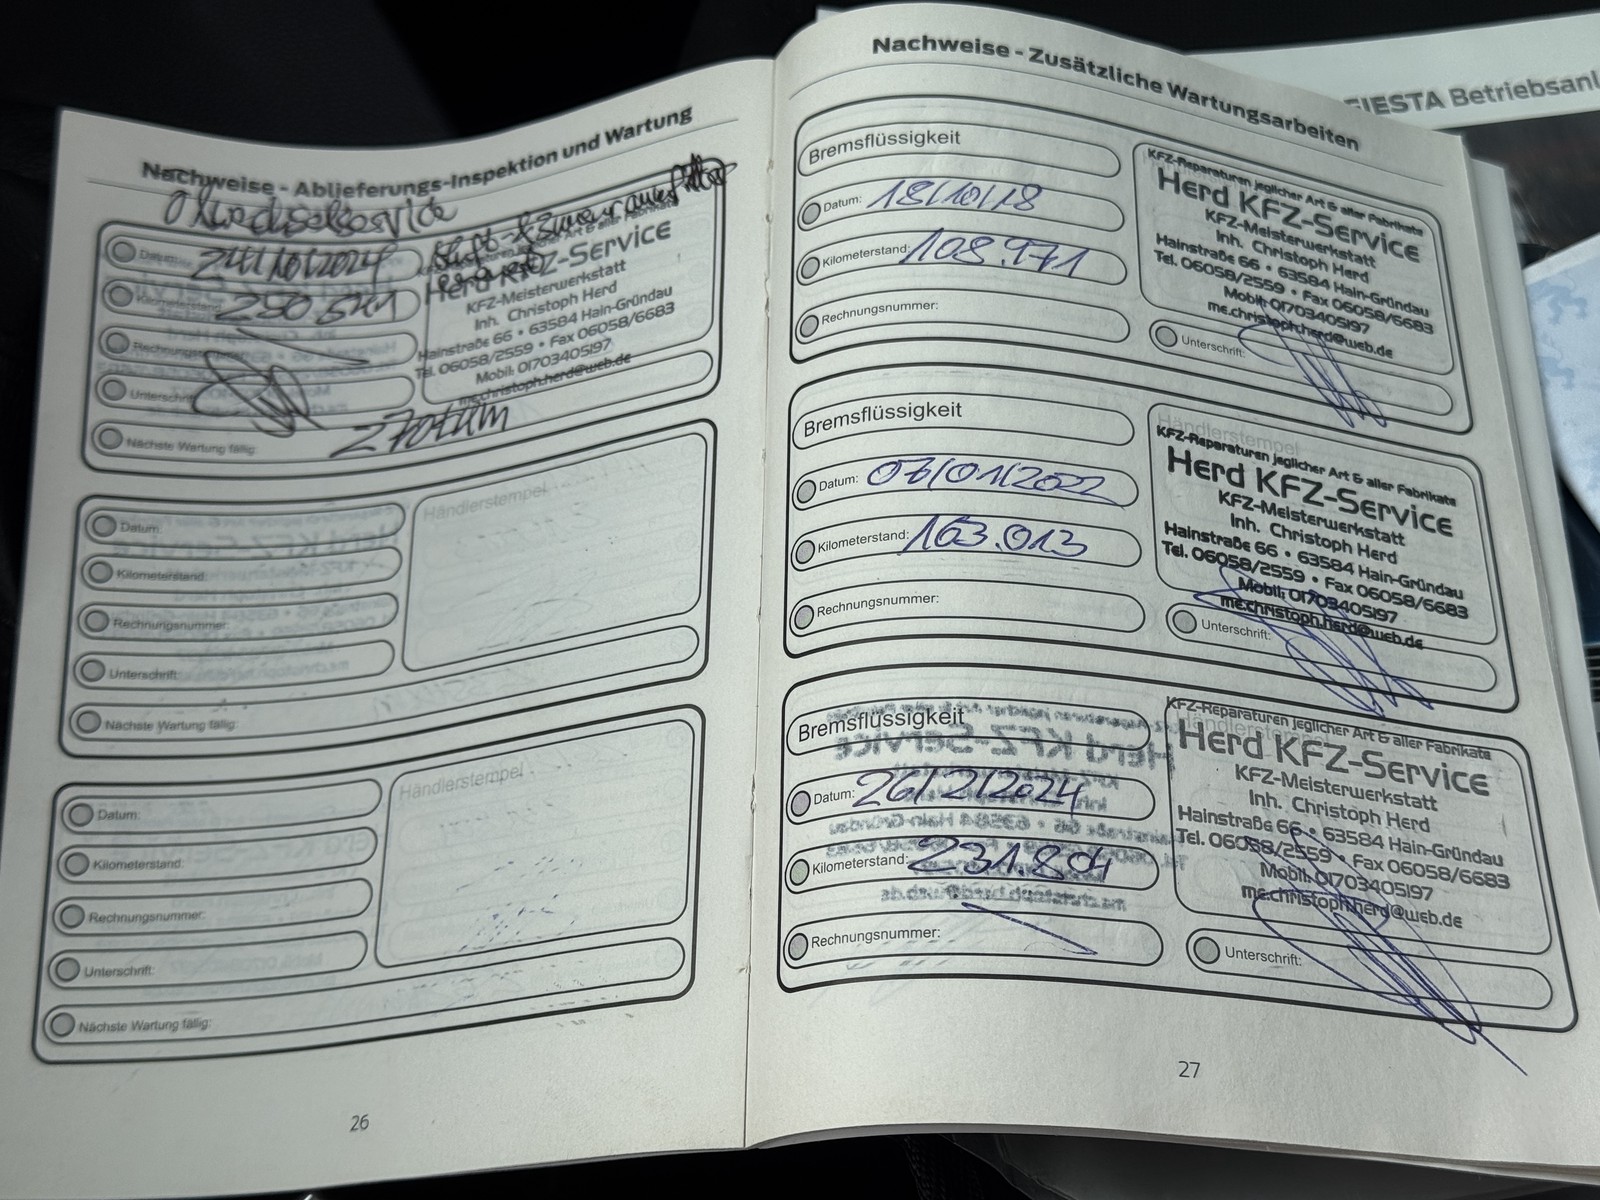 Nachweise - Ablieferungs-Inspektion und Wartung
Ölwechselservice
Datum:
Kilometerstand:
Rechnungsnummer:
Unterschrift:
Nächste Wartung fällig:
KFZ-Service
KFZ-Meisterwerkstatt
Inh. Christoph Herd
Hainstraße 66 • 63584 Hain-Gründau
Tel. 06058/2559 • Fax 06058/6683
Mobil: 01703405197
me.christoph.herd@web.de
Datum:
Kilometerstand:
Rechnungsnummer:
Unterschrift:
Nächste Wartung fällig:
Händlerstempel
Datum:
Kilometerstand:
Rechnungsnummer:
Unterschrift:
Nächste Wartung fällig:
Händlerstempel
26
Nachweise - Zusätzliche Wartungsarbeiten
Bremsflüssigkeit
Datum: 18/10/18
Kilometerstand: 108.971
Rechnungsnummer:
KFZ-Reparaturen jeglicher Art & aller Fabrikate
Herd KFZ-Service
KFZ-Meisterwerkstatt
Inh. Christoph Herd
Hainstraße 66 • 63584 Hain-Gründau
Tel. 06058/2559 • Fax 06058/6683
Mobil: 01703405197
me.christoph.herd@web.de
Unterschrift:
Bremsflüssigkeit
Datum: 07/01/2022
Kilometerstand: 163.013
Rechnungsnummer:
Händlerstempel
KFZ-Reparaturen jeglicher Art & aller Fabrikate
Herd KFZ-Service
KFZ-Meisterwerkstatt
Inh. Christoph Herd
Hainstraße 66 • 63584 Hain-Gründau
Tel. 06058/2559 • Fax 06058/6683
Mobil: 01703405197
me.christoph.herd@web.de
Unterschrift:
Bremsflüssigkeit
Datum: 26/2/2024
Kilometerstand: 231.804
Rechnungsnummer:
Händlerstempel
KFZ-Reparaturen jeglicher Art & aller Fabrikate
Herd KFZ-Service
KFZ-Meisterwerkstatt
Inh. Christoph Herd
Hainstraße 66 • 63584 Hain-Gründau
Tel. 06058/2559 • Fax 06058/6683
Mobil: 01703405197
me.christoph.herd@web.de
Unterschrift:
27
FIESTA